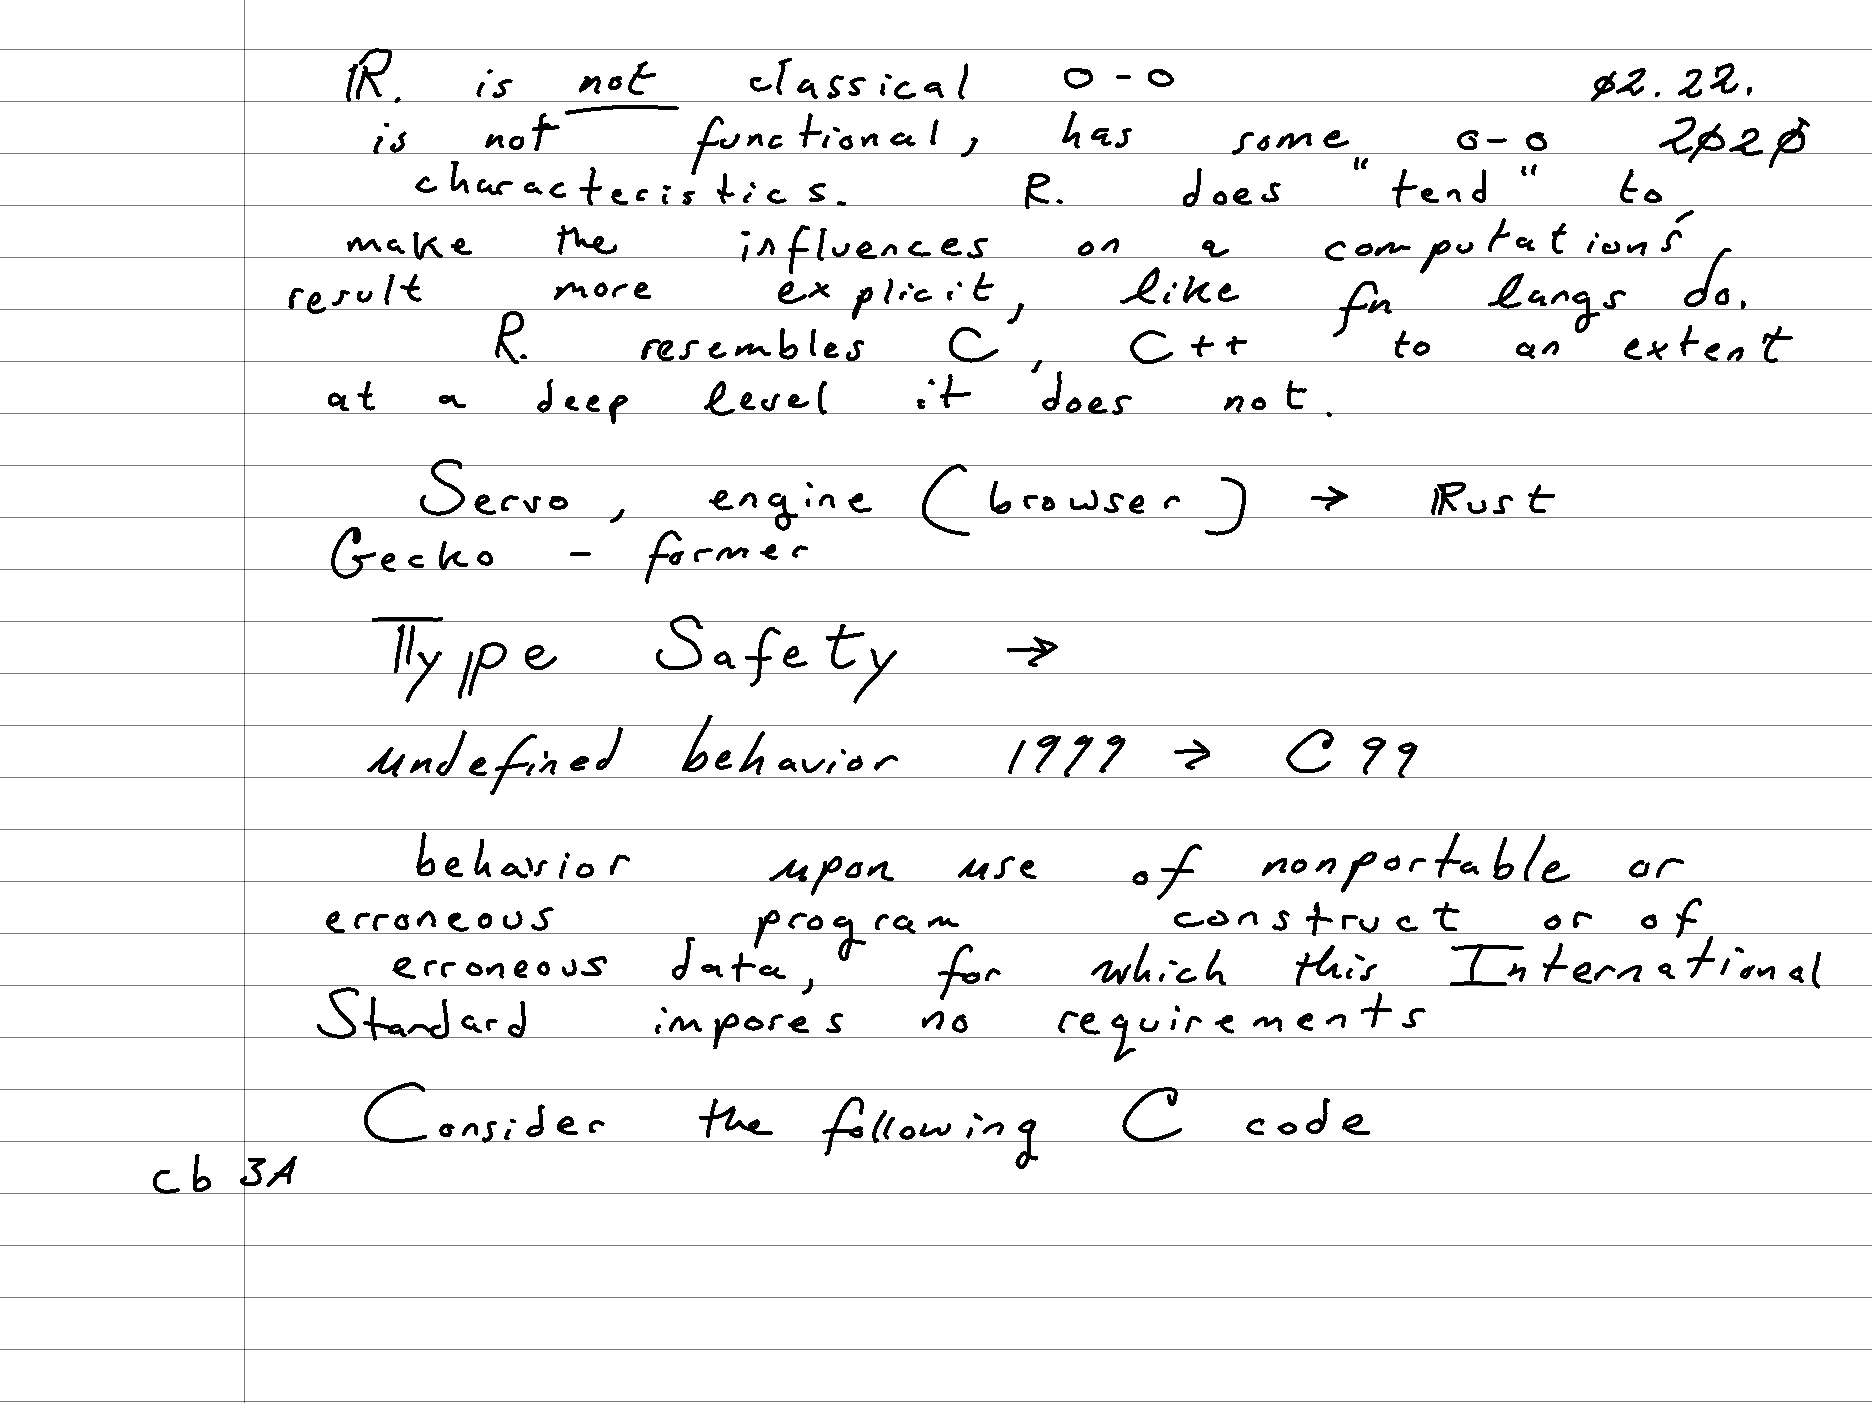 R. is not classical o-o ø2.22.
is not functional, has some o-o 2ø2ø
characteristics. R. does "tend" to
make the influences on a computation's
result more explicit, like fn langs do.
R. resembles C, C++ to an extent
at a deep level it does not.
Servo, engine (browser) → Rust
Gecko - former
Type Safety →
undefined behavior 1999 → C99
behavior upon use of nonportable or
erroneous program construct or of
erroneous data, for which this International
Standard imposes no requirements
Consider the following C code
cb 3A